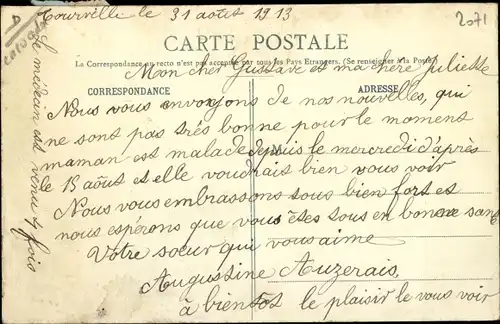 Tourville le 31 août 1913
2071
CARTE POSTALE
La Correspondance au recto n'est pas acceptée par tous les Pays Etrangers. (Se renseigner à la Poste)
Mon cher Gustave et ma chère Juliette
CORRESPONDANCE
ADRESSE
Nous vous envoyons de nos nouvelles, qui
ne sont pas très bonne pour le moment
maman est malade depuis le mercredi d'après
le 15 août et elle voudrais bien vous voir
Nous vous embrassons tous bien fort et
nous espérons que vous êtes tous en bonne santé
Votre sœur qui vous aime
Augustine Auzerais,
à bientot le plaisir de vous voir
le medecin est venu 4 fois